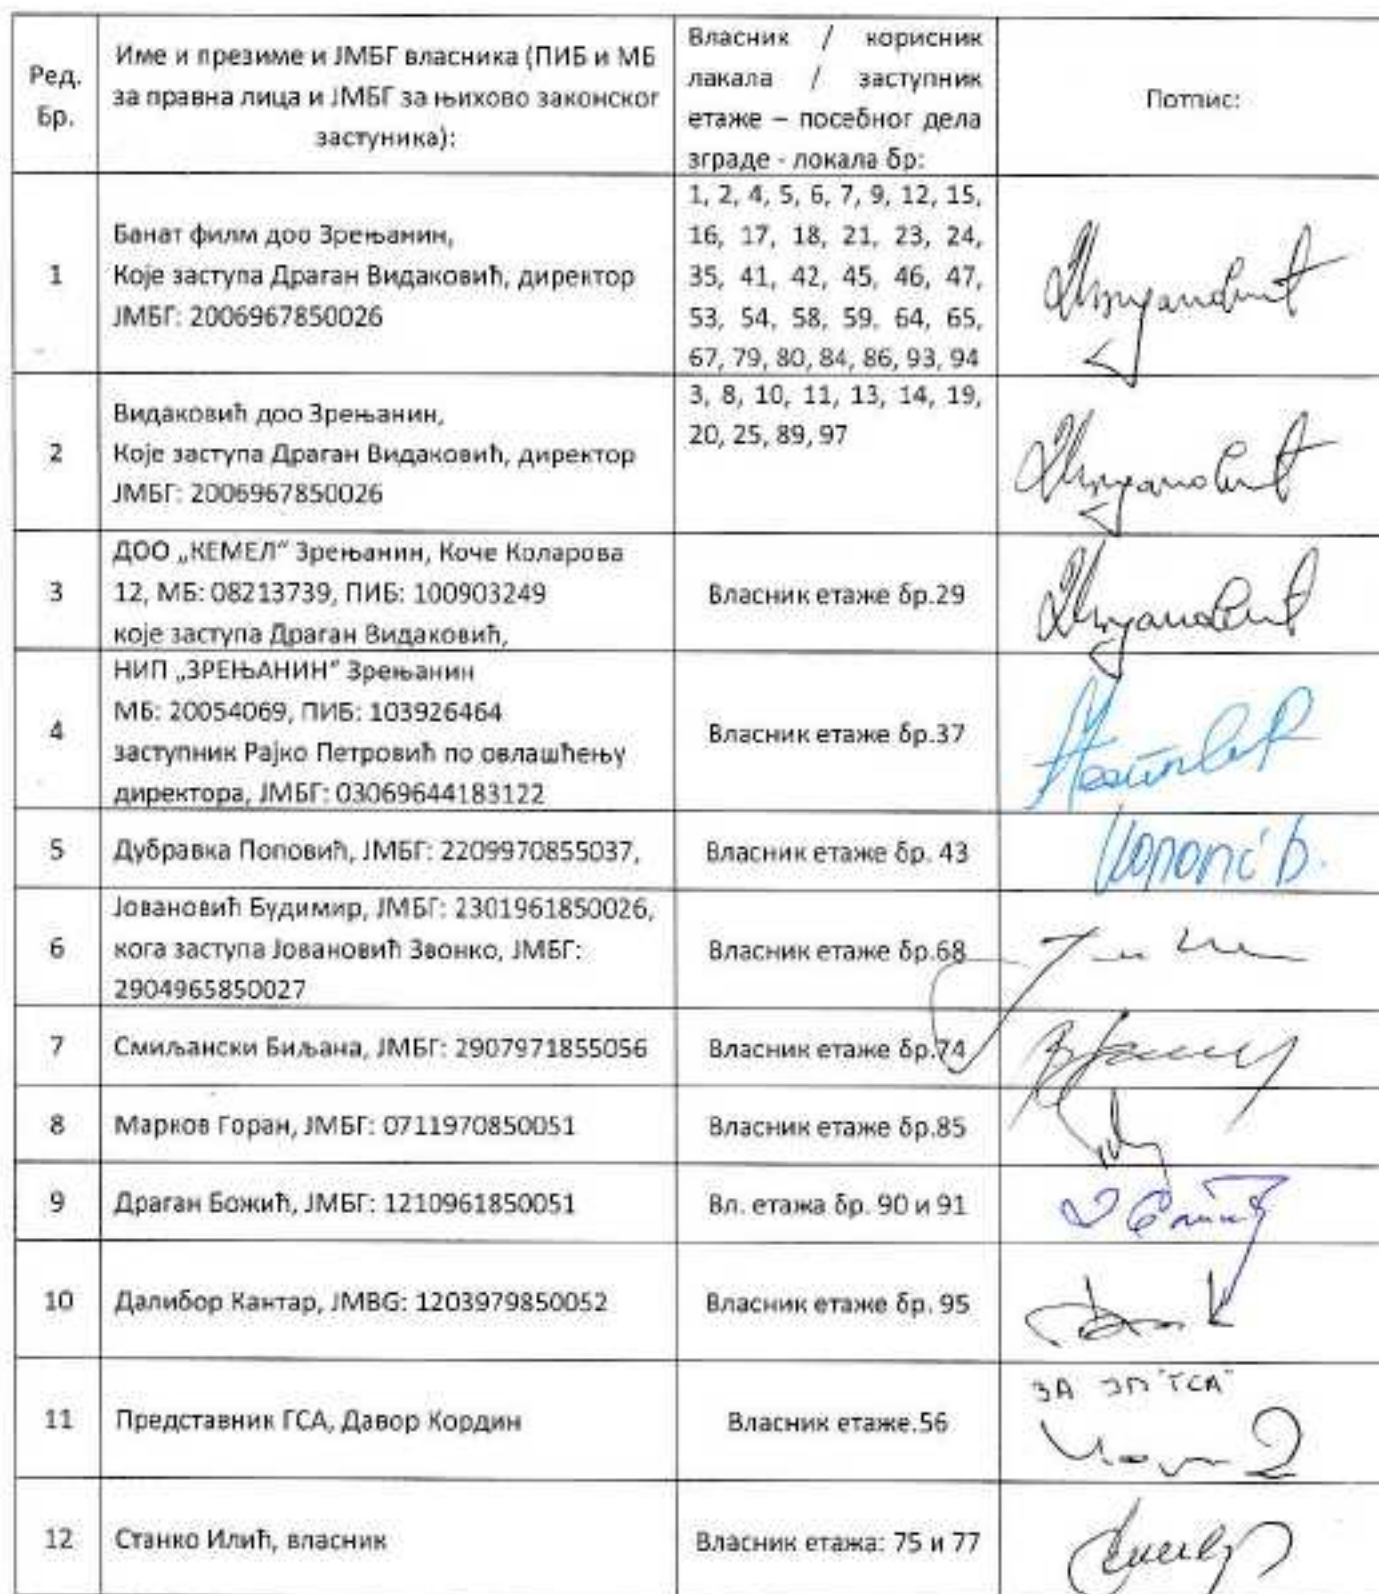 Ред.
Бр.
Име и презиме и ЈМБГ власника (ПИБ и МБ
за правна лица и ЈМБГ за њихово законског
застуника):
Власник / корисник
лакала / заступник
етаже – посебног дела
зграде - локала бр:
Потпис:
1
Банат филм доо Зрењанин,
Које заступа Драган Видаковић, директор
ЈМБГ: 2006967850026
1, 2, 4, 5, 6, 7, 9, 12, 15,
16, 17, 18, 21, 23, 24,
35, 41, 42, 45, 46, 47,
53, 54, 58, 59, 64, 65,
67, 79, 80, 84, 86, 93, 94
2
Видаковић доо Зрењанин,
Које заступа Драган Видаковић, директор
ЈМБГ: 2006967850026
3, 8, 10, 11, 13, 14, 19,
20, 25, 89, 97
3
ДОО „КЕМЕЛ“ Зрењанин, Коче Коларова
12, МБ: 08213739, ПИБ: 100903249
које заступа Драган Видаковић,
Власник етаже бр.29
4
НИП „ЗРЕЊАНИН“ Зрењанин
МБ: 20054069, ПИБ: 103926464
заступник Рајко Петровић по овлашћењу
директора, ЈМБГ: 03069644183122
Власник етаже бр.37
5
Дубравка Поповић, ЈМБГ: 2209970855037,
Власник етаже бр. 43
6
Јовановић Будимир, ЈМБГ: 2301961850026,
кога заступа Јовановић Звонко, ЈМБГ:
2904965850027
Власник етаже бр.68
7
Смиљански Биљана, ЈМБГ: 2907971855056
Власник етаже бр.74
8
Марков Горан, ЈМБГ: 0711970850051
Власник етаже бр.85
9
Драган Божић, ЈМБГ: 1210961850051
Вл. етажа бр. 90 и 91
10
Далибор Кантар, JMBG: 1203979850052
Власник етаже бр. 95
11
Представник ГСА, Давор Кордин
Власник етаже.56
ЗА ЗП "ГСА"
12
Станко Илић, власник
Власник етажа: 75 и 77